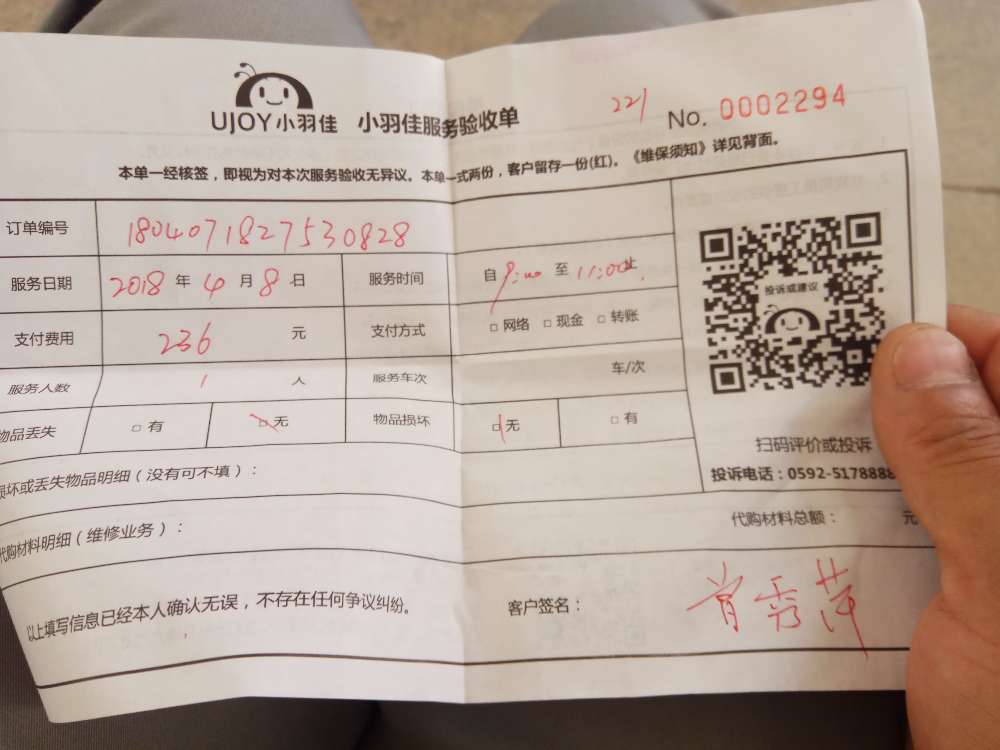 UJOY小羽佳 小羽佳服务验收单
221 No. 0002294
本单一经核签，即视为对本次服务验收无异议。本单一式两份，客户留存一份(红)。《维保须知》详见背面。
订单编号 1804071827530828
服务日期 2018 年 4 月 8 日 服务时间 自 9:00 至 11:00止
支付费用 236 元 支付方式 □ 网络 □ 现金 □ 转账
服务人数 1 人 服务车次 车/次
物品丢失 □ 有 □ 无 物品损坏 □ 无 □ 有
投诉或建议
扫码评价或投诉
投诉电话：0592-5178888
损坏或丢失物品明细（没有可不填）：
代购材料明细（维修业务）： 代购材料总额： 元
以上填写信息已经本人确认无误，不存在任何争议纠纷。 客户签名： 肖秀萍